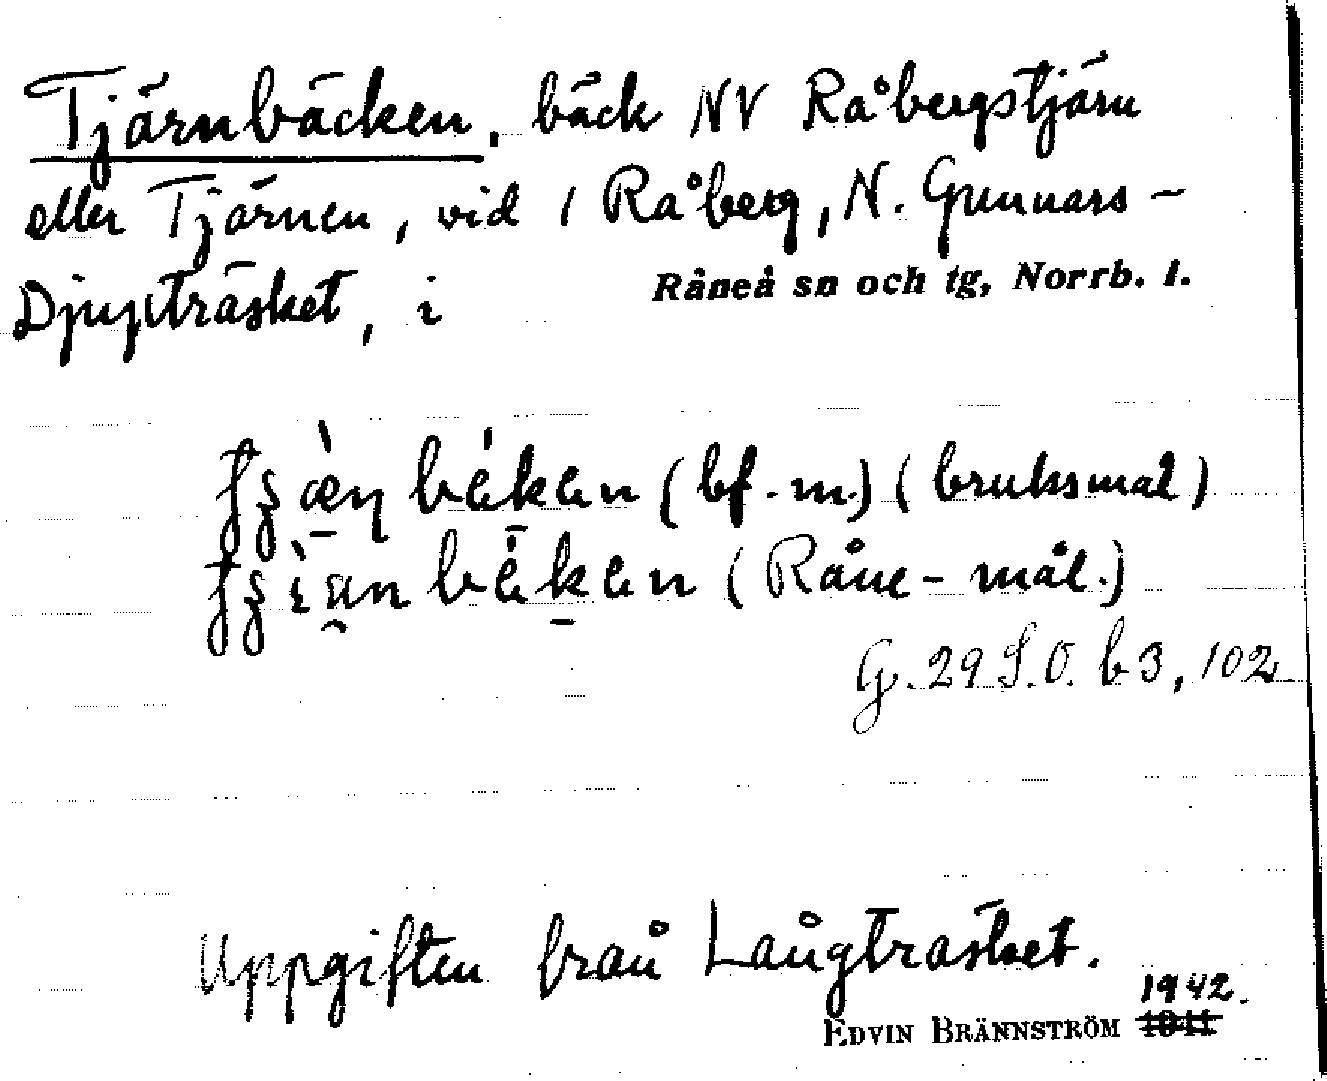 Tjärnbäcken, bäck NV Råbergstjärn
eller Tjärnen, vid 1 Råberg, N. Gunnars-
Djupträsket, i Råneå sn och tg, Norrb. l.
bèken (bf. m.) (bruksmål)
(Råne-mål.)
G. 29 S.O. b 3, 102
Uppgiften från Långträsket.
1942.
EDVIN BRÄNNSTRÖM 1941